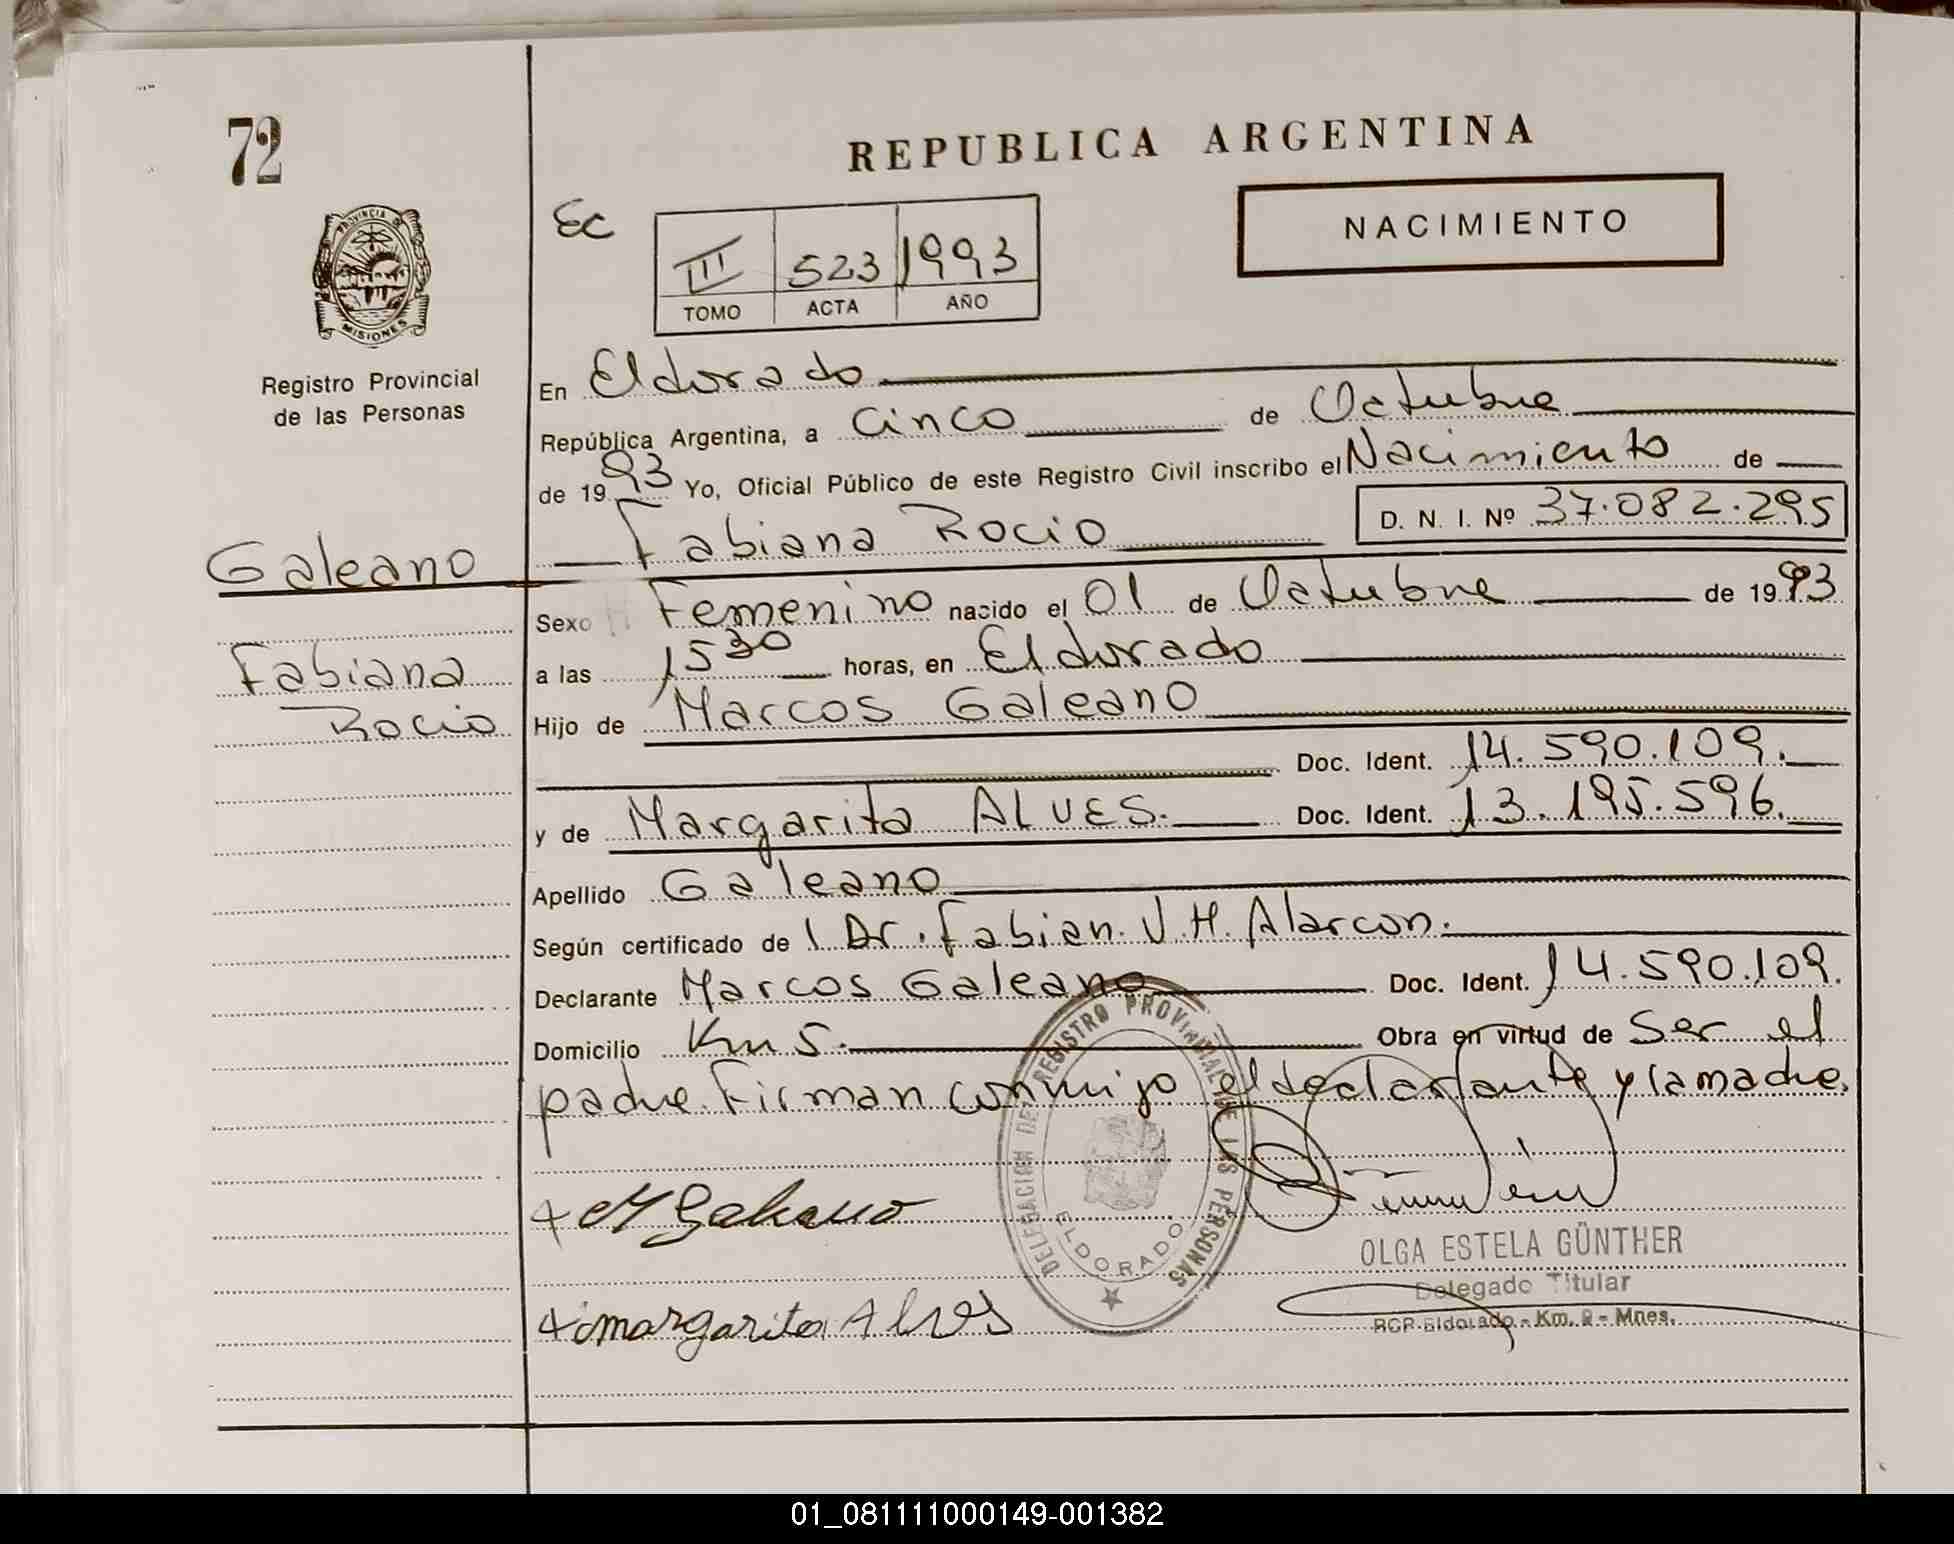 72
REPUBLICA ARGENTINA
NACIMIENTO
Ec
III 523 1993
TOMO ACTA AÑO
PROVINCIA DE
MISIONES
Registro Provincial
de las Personas
En Eldorado
República Argentina, a Cinco de Octubre
de 1993 Yo, Oficial Público de este Registro Civil inscribo el Nacimiento de
Fabiana Rocio D. N. I. Nº 37.082.295
Galeano
Fabiana
Rocio
Sexo Femenino nacido el 01 de Octubre de 1993
a las 1530 horas, en Eldorado
Hijo de Marcos Galeano
Doc. Ident. 14.590.109.
y de Margarita ALVES. Doc. Ident. 13.195.596.
Apellido Galeano
Según certificado de Dr. Fabian. J. H. Alarcon.
Declarante Marcos Galeano Doc. Ident. 14.590.109.
Domicilio Km 5. Obra en virtud de Ser el
padre. Firman conmigo el declarante y la madre.
DELEGACION DEL REGISTRO PROVINCIAL DE LAS PERSONAS
ELDORADO
M Galeano
OLGA ESTELA GÜNTHER
Delegado Titular
RCP. Eldorado - Km. 9 - Mnes.
margarita Alves
01_081111000149-001382